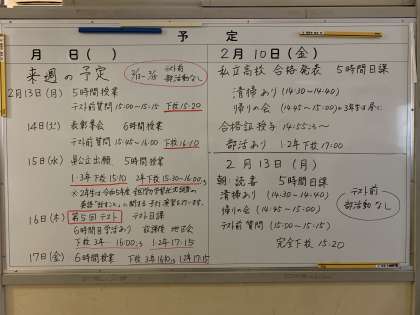 予定
月 日( )
来週の予定
テスト前
部活動なし
2月13日(月) 5時間授業
テスト前質問 15:00~15:15 下校15:20
14日(火) 表彰集会 6時間授業
テスト前質問 15:45~16:00 下校16:10
15日(水) 県公立出願 5時間授業
1・3年下校15:10 2年下校15:30~16:00
16日(木) 第5回テスト テスト日課
6時間目学活あり 放課後 地区会
下校 3年 16:00 1・2年17:15
17日(金) 6時間授業 下校 3年16:10 1・2年17:15
2月10日(金)
私立高校 合格発表 5時間日課
清掃あり (14:30~14:40)
帰りの会 (14:45~15:00)
合格証授与 14:55~
部活あり 1・2年下校 17:00
2月13日(月)
朝:読書 5時間日課
清掃あり (14:30~14:40)
帰りの会 (14:45~15:00)
テスト前質問 (15:00~15:15)
テスト前
部活動なし
完全下校 15:20